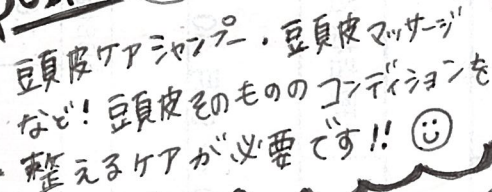 頭皮ケアシャンプー、頭皮マッサージ
など!頭皮そのもののコンディションを
整えるケアが必要です!!